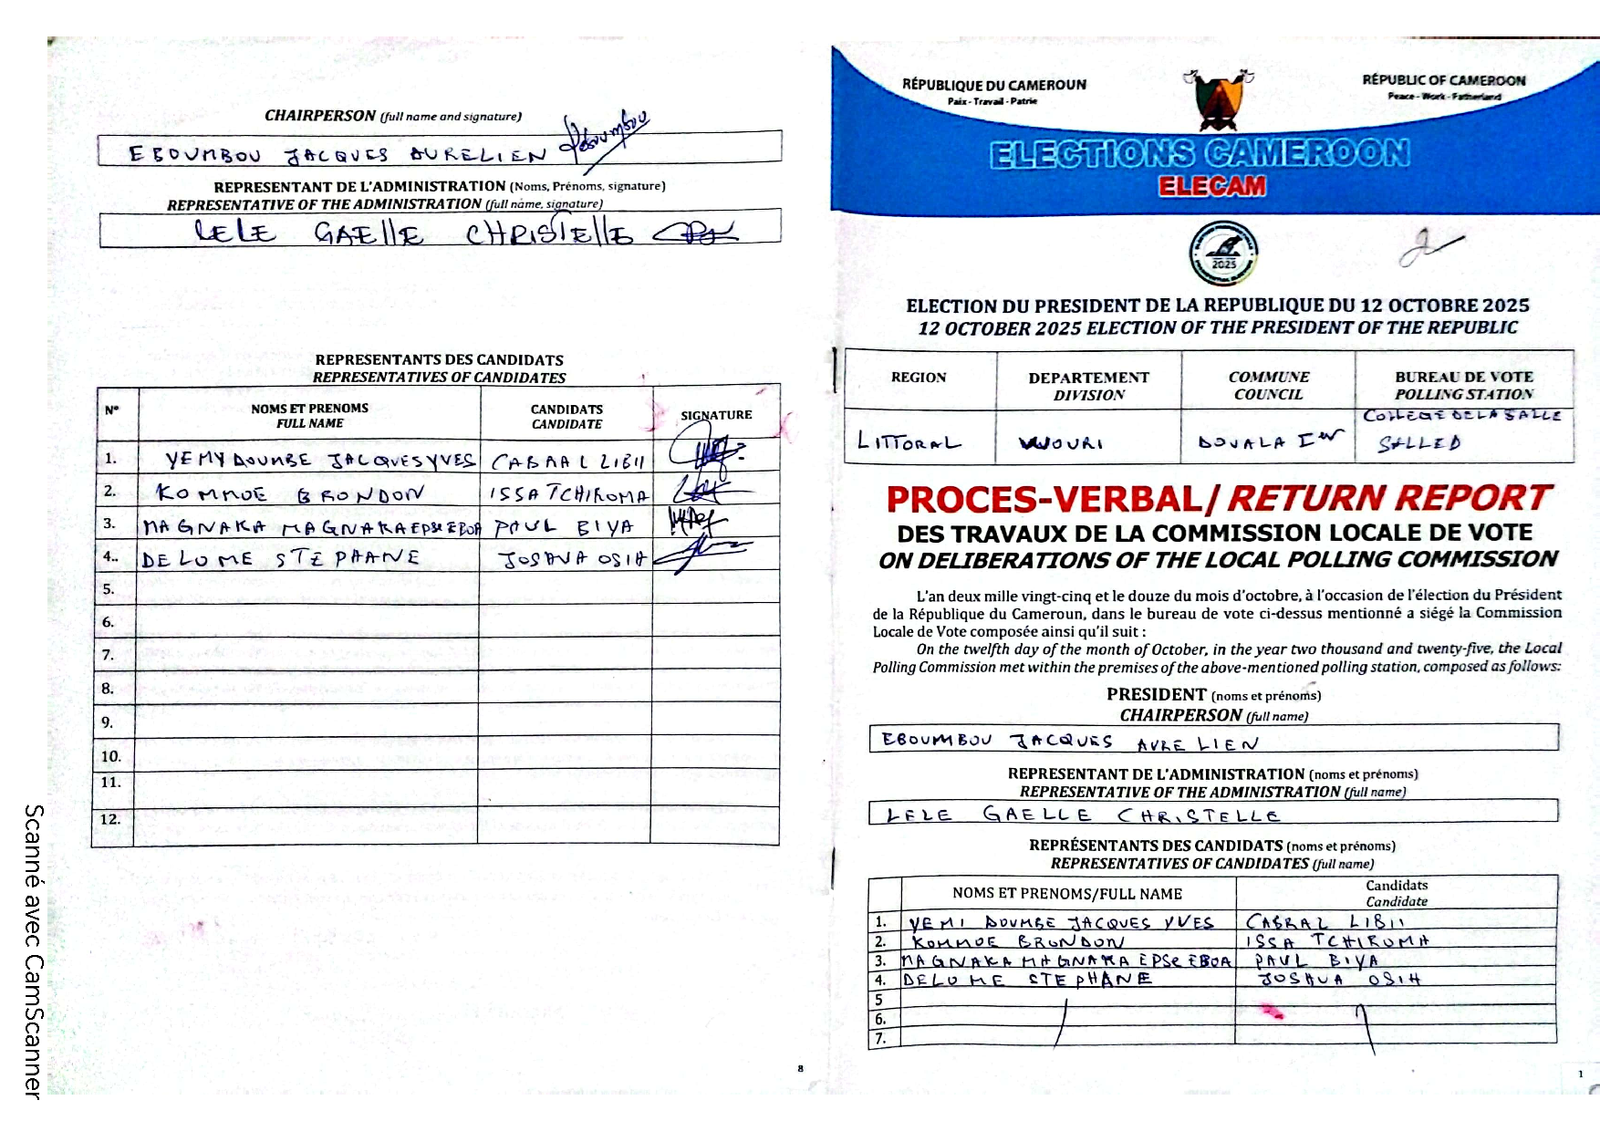 CHAIRPERSON (full name and signature)
EBOUMBOU JACQUES AURELIEN
REPRESENTANT DE L'ADMINISTRATION (Noms, Prénoms, signature)
REPRESENTATIVE OF THE ADMINISTRATION (full name, signature)
LELE GAELLE CHRISTELLE
REPRESENTANTS DES CANDIDATS
REPRESENTATIVES OF CANDIDATES
N° NOMS ET PRENOMS FULL NAME CANDIDATS CANDIDATE SIGNATURE
1. YEMY DOUMBE JACQUES YVES CABRAL LIBII
2. KOMMOE BRONDON ISSA TCHIROMA
3. MAGNAKA MAGNAKA EPSE EBOA PAUL BIYA
4.. DELOME STEPHANE JOSHUA OSIH
5.
6.
7.
8.
9.
10.
11.
12.
8
Scanné avec CamScanner
RÉPUBLIQUE DU CAMEROUN
Paix - Travail - Patrie
RÉPUBLIC OF CAMEROON
Peace - Work - Fatherland
ELECTIONS CAMEROON
ELECAM
2025
ELECTION DU PRESIDENT DE LA REPUBLIQUE DU 12 OCTOBRE 2025
12 OCTOBER 2025 ELECTION OF THE PRESIDENT OF THE REPUBLIC
REGION DEPARTEMENT DIVISION COMMUNE COUNCIL BUREAU DE VOTE POLLING STATION
LITTORAL WOURI DOUALA Ier COLLEGE DE LA SALLE SALLE D
PROCES-VERBAL/ RETURN REPORT
DES TRAVAUX DE LA COMMISSION LOCALE DE VOTE
ON DELIBERATIONS OF THE LOCAL POLLING COMMISSION
L'an deux mille vingt-cinq et le douze du mois d'octobre, à l'occasion de l'élection du Président
de la République du Cameroun, dans le bureau de vote ci-dessus mentionné a siégé la Commission
Locale de Vote composée ainsi qu'il suit :
On the twelfth day of the month of October, in the year two thousand and twenty-five, the Local
Polling Commission met within the premises of the above-mentioned polling station, composed as follows:
PRESIDENT (noms et prénoms)
CHAIRPERSON (full name)
EBOUMBOU JACQUES AURELIEN
REPRESENTANT DE L'ADMINISTRATION (noms et prénoms)
REPRESENTATIVE OF THE ADMINISTRATION (full name)
LELE GAELLE CHRISTELLE
REPRÉSENTANTS DES CANDIDATS (noms et prénoms)
REPRESENTATIVES OF CANDIDATES (full name)
NOMS ET PRENOMS/FULL NAME Candidats Candidate
1. YEMI DOUMBE JACQUES YVES CABRAL LIBII
2. KOMMOE BRONDON ISSA TCHIROMA
3. MAGNAKA MAGNAKA EPSE EBOA PAUL BIYA
4. DELOME STEPHANE JOSHUA OSIH
5
6.
7.
1